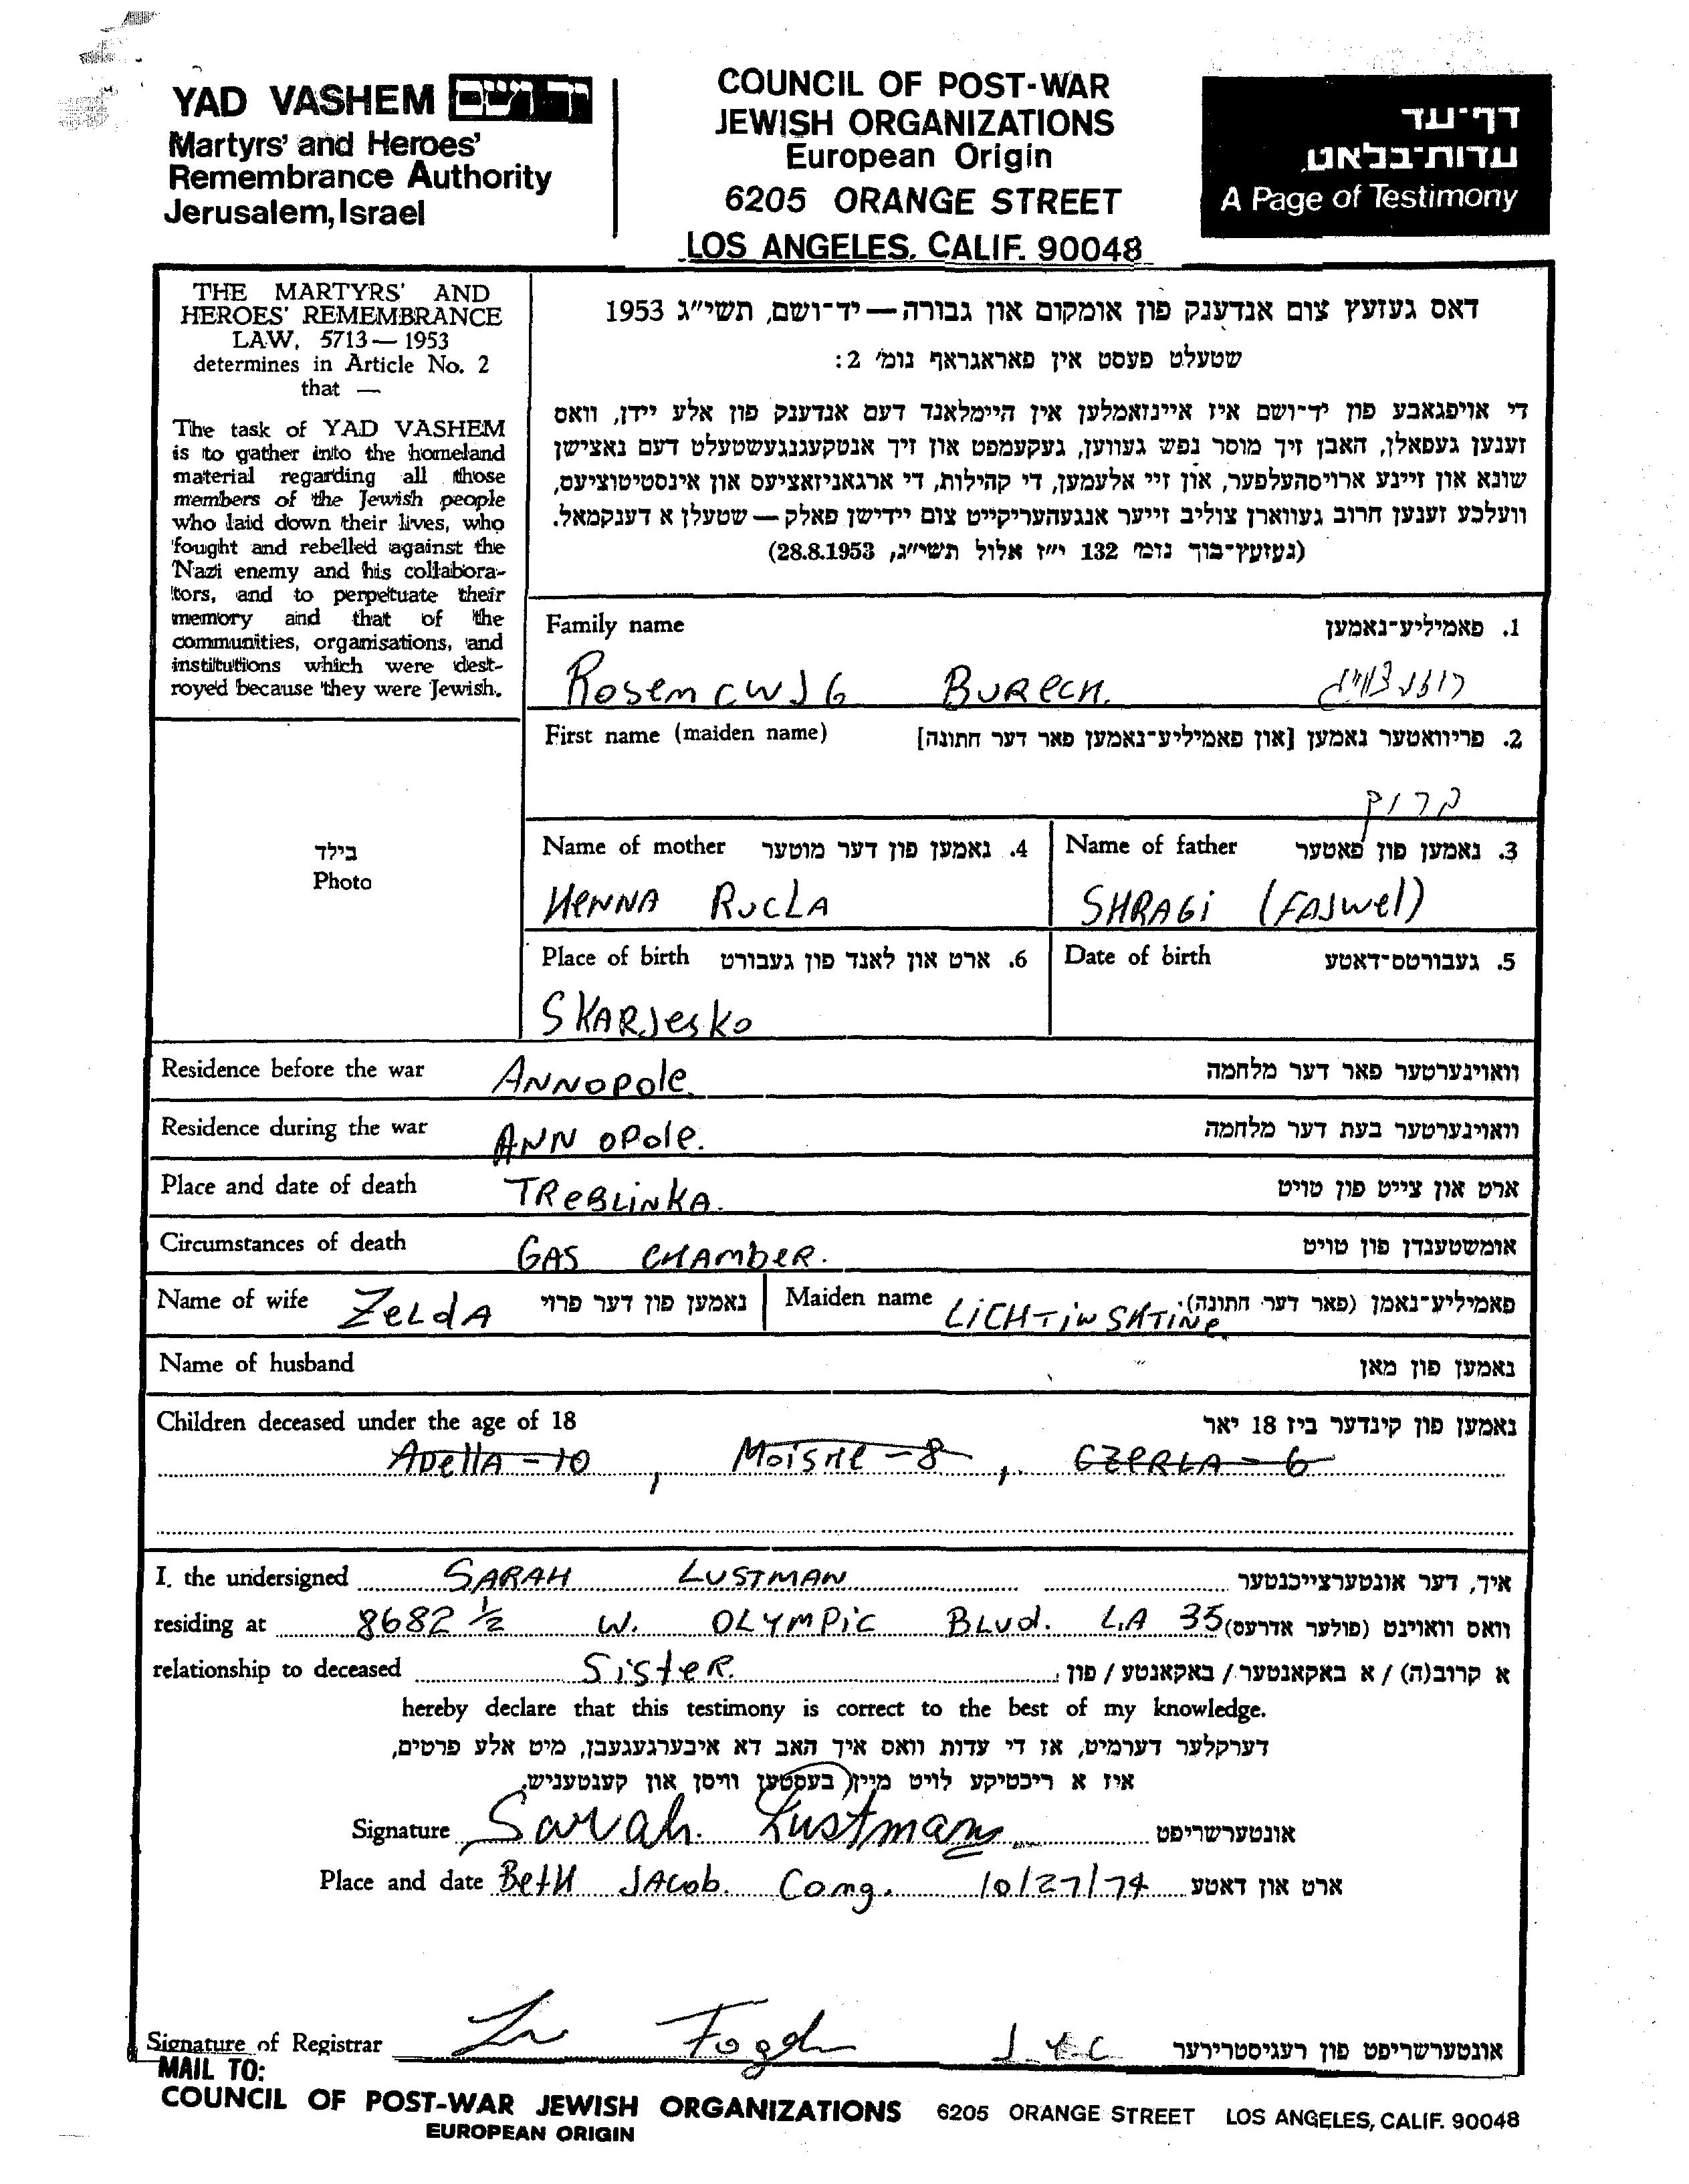 YAD VASHEM יד ושם
Martyrs' and Heroes'
Remembrance Authority
Jerusalem, Israel
COUNCIL OF POST-WAR
JEWISH ORGANIZATIONS
European Origin
6205 ORANGE STREET
LOS ANGELES, CALIF. 90048
דף־עד
עדות־בלאט
A Page of Testimony
THE MARTYRS' AND
HEROES' REMEMBRANCE
LAW, 5713—1953
determines in Article No. 2
that —
The task of YAD VASHEM
is to gather into the homeland
material regarding all those
members of the Jewish people
who laid down their lives, who
fought and rebelled against the
Nazi enemy and his collabora-
tors, and to perpetuate their
memory and that of the
communities, organisations, and
institutions which were dest-
royed because they were Jewish.
דאס געזעץ צום אנדענק פון אומקום און גבורה — יד־ושם, תשי״ג 1953
שטעלט פעסט אין פאראגראף נומ׳ 2:
די אויפגאבע פון יד־ושם איז איינזאמלען אין היימלאנד דעם אנדענק פון אלע יידן, וואס
זענען געפאלן, האבן זיך מוסר נפש געווען, געקעמפט און זיך אנטקעגנגעשטעלט דעם נאצישן
שונא און זיינע ארויסהעלפער, און זיי אלעמען, די קהילות, די ארגאניזאציעס און אינסטיטוציעס,
וועלכע זענען חרוב געווארן צוליב זייער אנגעהעריקייט צום יידישן פאלק — שטעלן א דענקמאל.
(געזעץ־בוך נומ׳ 132 י״ז אלול תשי״ג, 28.8.1953)
Family name 1. פאמיליע־נאמען
Rosemcwjg BURECH. רוזנצווייג
First name (maiden name) 2. פריוואטער נאמען [און פאמיליע־נאמען פאר דער חתונה]
ברוך
בילד
Photo
Name of mother 4. נאמען פון דער מוטער Name of father 3. נאמען פון פאטער
HENNA RUCLA SHRAGi (FAJwel)
Place of birth 6. ארט און לאנד פון געבורט Date of birth 5. געבורטס־דאטע
SKARJesko
Residence before the war ANNOPOle. וואוינערטער פאר דער מלחמה
Residence during the war ANN OPOle. וואוינערטער בעת דער מלחמה
Place and date of death TReBLiNKA. ארט און צייט פון טויט
Circumstances of death GAS CHAMbeR. אומשטענדן פון טויט
Name of wife ZeLdA נאמען פון דער פרוי Maiden name LiCHTiwSHTiNe פאמיליע־נאמן (פאר דער חתונה)
Name of husband נאמען פון מאן
Children deceased under the age of 18 נאמען פון קינדער ביז 18 יאר
ADellA - 10, MoiSHe - 8, CZeRLA - 6
I, the undersigned SARAH LUSTMAN איך, דער אונטערצייכנטער
residing at 8682 ½ W. OLYMPiC BLVd. L.A 35 וואס וואוינט (פולער אדרעס)
relationship to deceased SisteR. א קרוב(ה) / א באקאנטער / באקאנטע / פון
hereby declare that this testimony is correct to the best of my knowledge.
דערקלער דערמיט, אז די עדות וואס איך האב דא איבערגעגעבן, מיט אלע פרטים,
איז א ריכטיקע לויט מיין בעסטען וויסן און קענטעניש.
Signature Sarah Lustman אונטערשריפט
Place and date BetH JAcob. Comg. 10/27/74 ארט און דאטע
Signature of Registrar אונטערשריפט פון רעגיסטרירער
MAIL TO:
COUNCIL OF POST-WAR JEWISH ORGANIZATIONS 6205 ORANGE STREET LOS ANGELES, CALIF. 90048
EUROPEAN ORIGIN